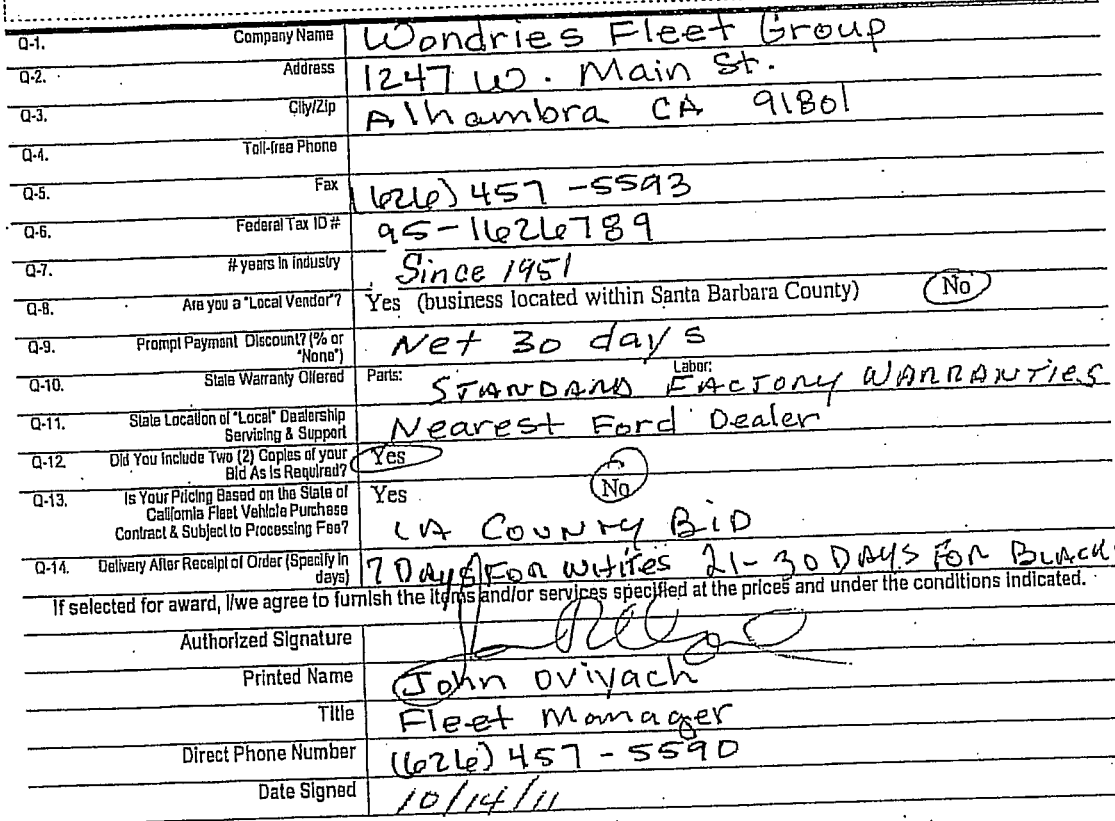 Q-1. Company Name Wondries Fleet Group
Q-2. Address 1247 W. Main St.
Q-3. City/Zip Alhambra CA 91801
Q-4. Toll-free Phone
Q-5. Fax (626) 457-5593
Q-6. Federal Tax ID # 95-1626789
Q-7. # years in industry Since 1951
Q-8. Are you a "Local Vendor"? Yes (business located within Santa Barbara County) No
Q-9. Prompt Payment Discount? (% or "None") Net 30 days
Q-10. State Warranty Offered Parts: Labor: STANDARD FACTORY WARRANTIES
Q-11. State Location of "Local" Dealership Servicing & Support Nearest Ford Dealer
Q-12. Did You Include Two (2) Copies of your Bid As Is Required? Yes No
Q-13. Is Your Pricing Based on the State of California Fleet Vehicle Purchase Contract & Subject to Processing Fee? Yes LA COUNTY BID
Q-14. Delivery After Receipt of Order (Specify in days) 7 DAYS FOR WHITES 21-30 DAYS FOR BLACK
If selected for award, I/we agree to furnish the items and/or services specified at the prices and under the conditions indicated.
Authorized Signature
Printed Name John Oviyach
Title Fleet Manager
Direct Phone Number (626) 457-5590
Date Signed 10/14/11